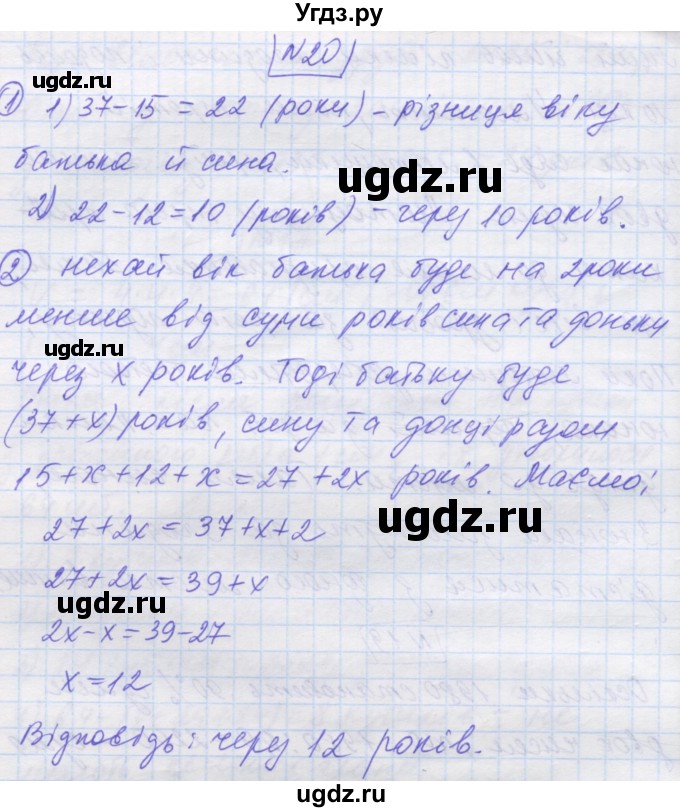 Угдз.ру
N20
ugdz.ru
① 1) 37-15 = 22 (роки) - різниця віку
батька й сина.
ugdz.ru
2) 22-12=10 (років) - через 10 років.
② нехай вік батька буде на 2 роки
менше від суми років сина та доньки
ugdz.ru
через x років. Тоді батьку буде
(37+x) років, сину та донці разом
15+x+12+x=27+2x років. Маємо:
27+2x = 37+x+2
ugdz.ru
27+2x = 39+x
ugdz.ru
2x-x = 39-27
x = 12
Відповідь: через 12 років.
ugdz.ru